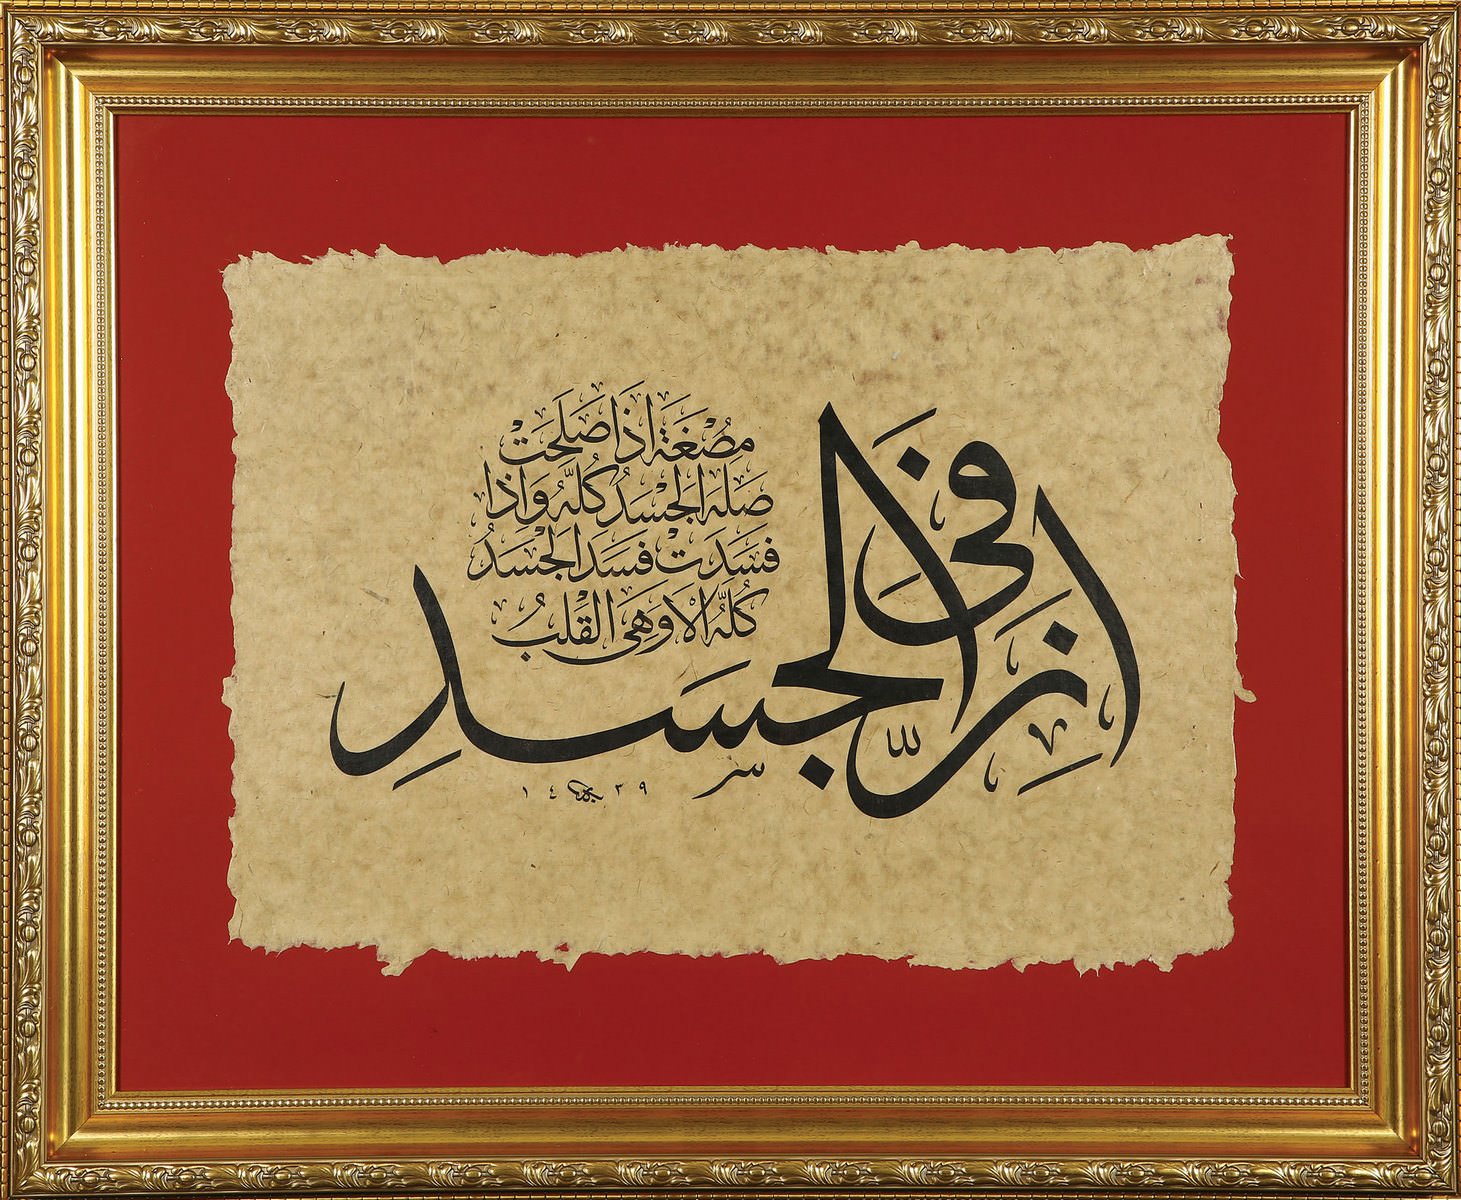 إنَّ في الجسدِ
مُضْغَةَ اذَا صَلَحَتْ
صَلَحَ الجْسَدُ كُلَّهُ وَاذا
فسَدَتْ فسَدَ الجْسَدُ
كُلَّهُ الْاوَهَيَ القَلْبُ
١٤٣٩